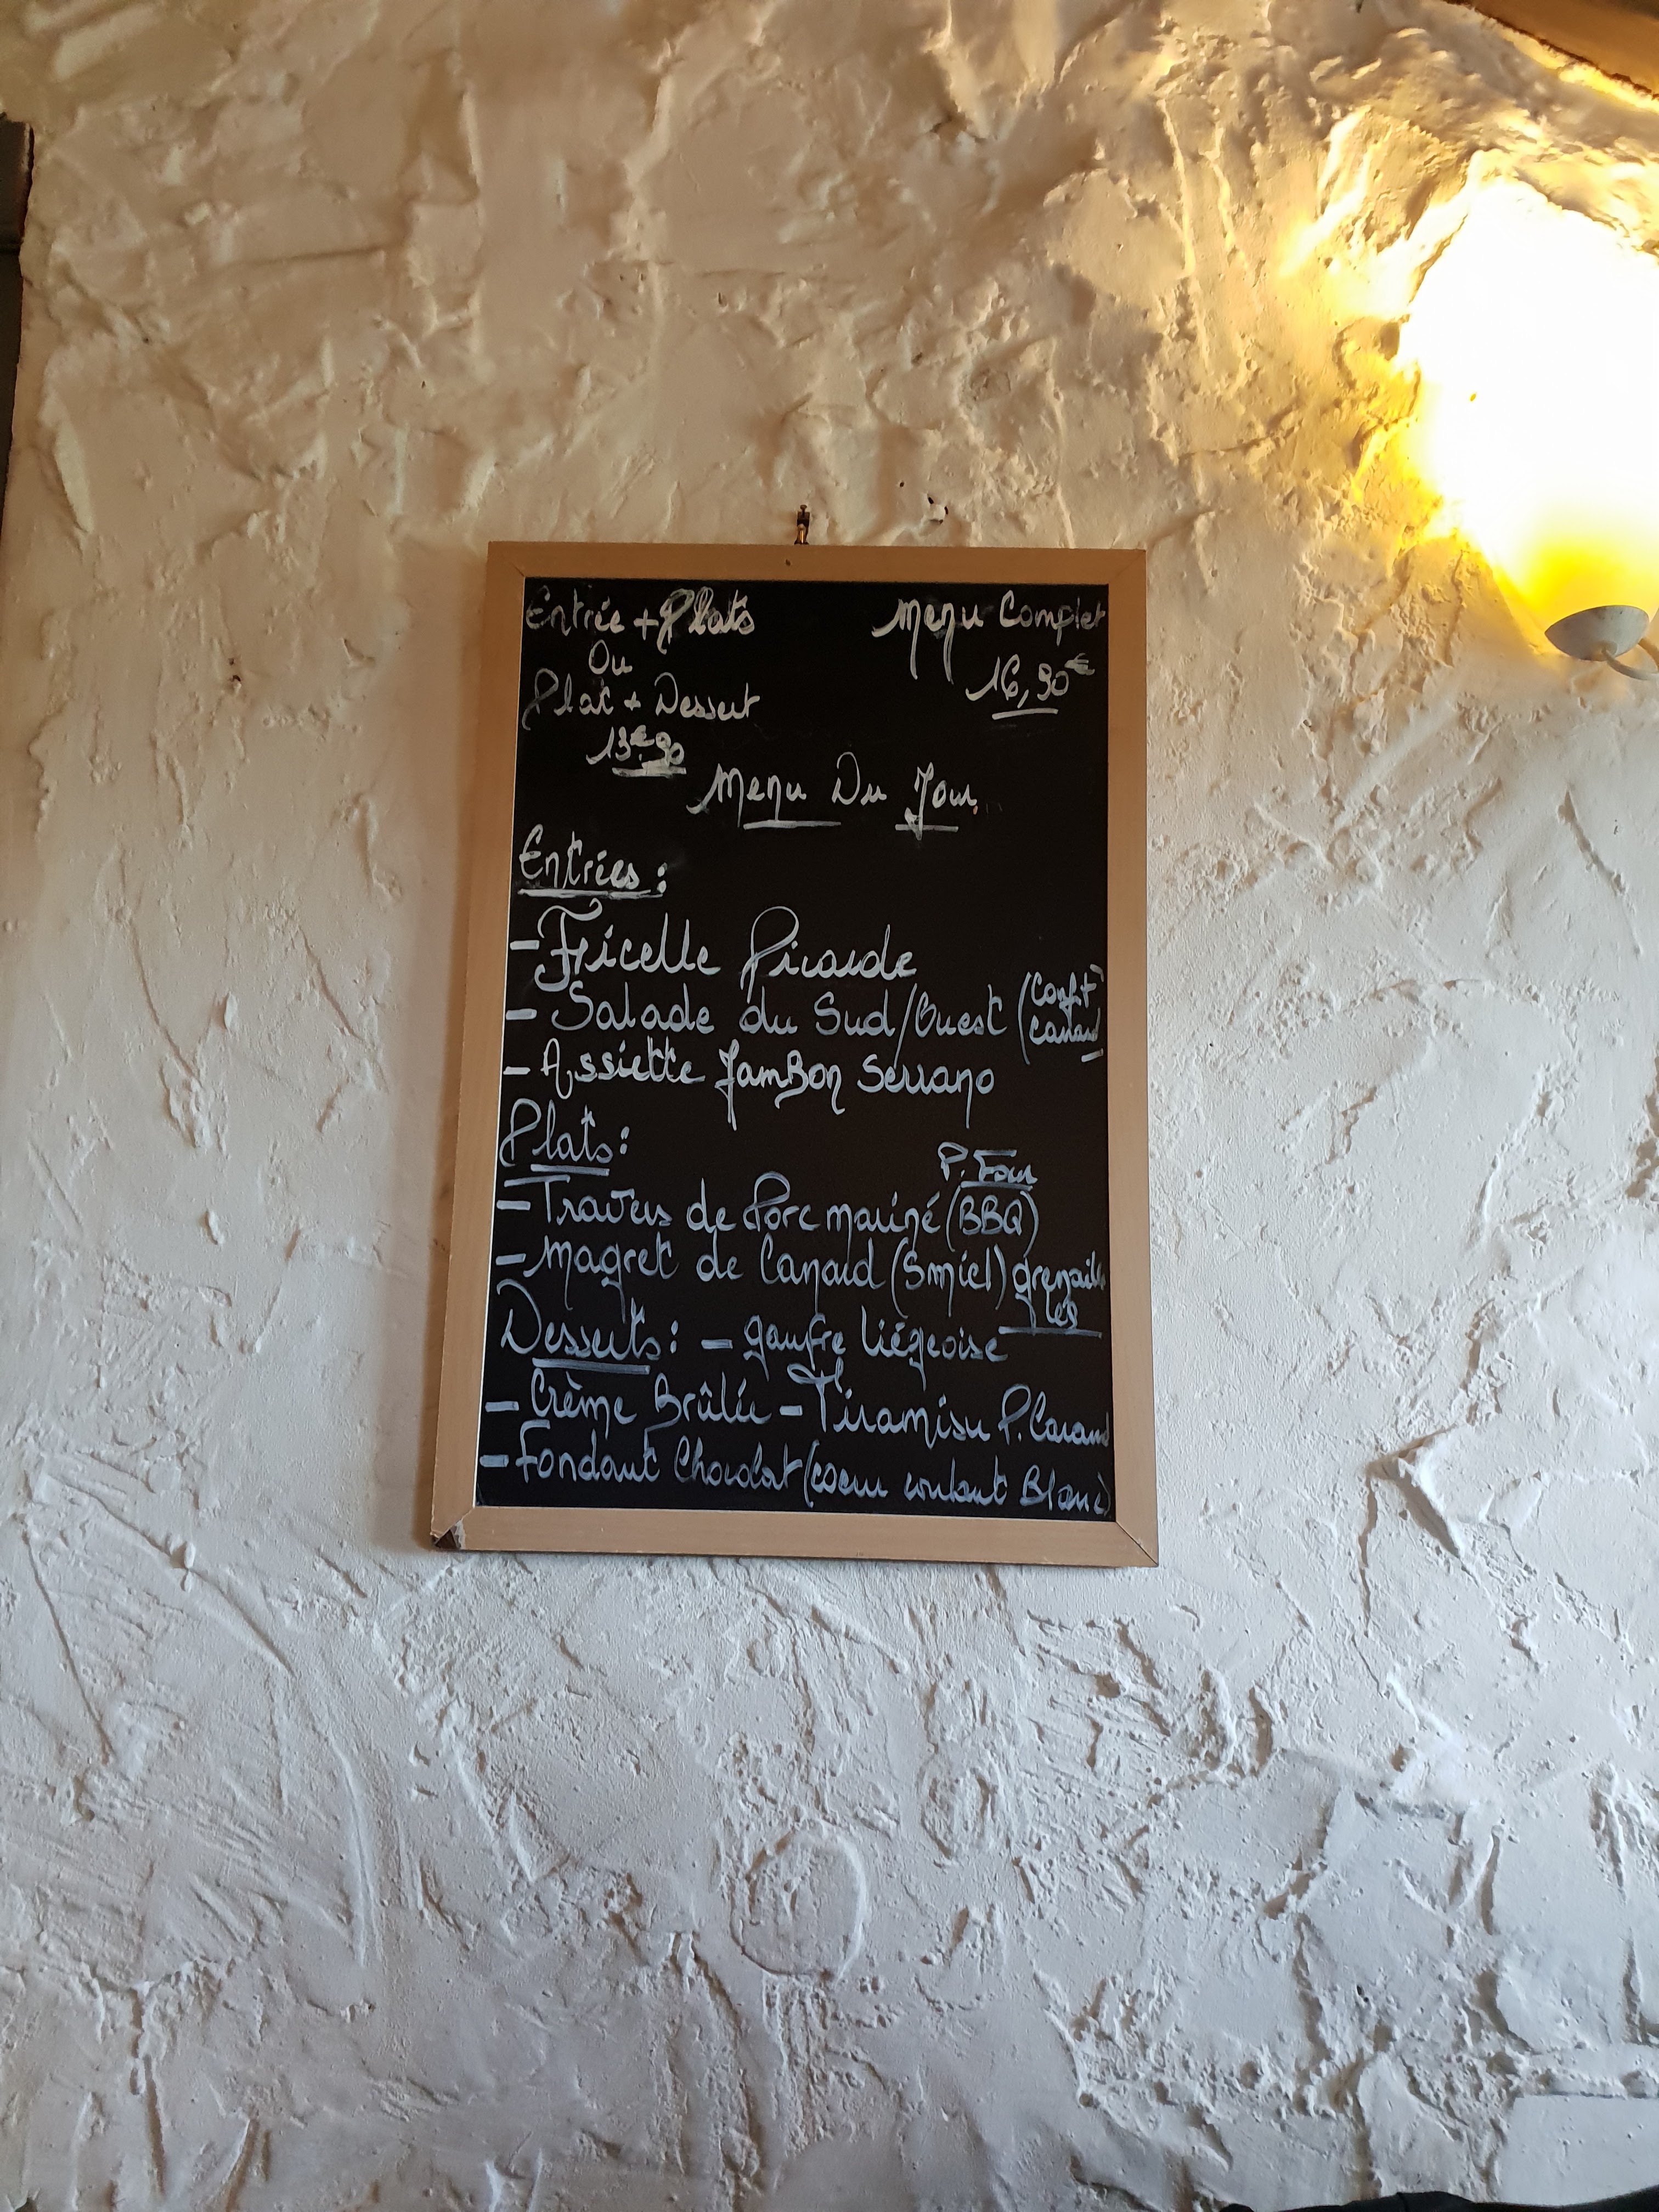 Entrée + Plats
Ou
Plat + Dessert
13€90
Menu Complet
16,90€
Menu Du Jour
Entrées :
- Ficelle Picarde
- Salade du Sud/Ouest (Confit
Canard)
- Assiette Jambon Serrano
Plats :
P. Four
- Travers de Porc mariné (BBQ)
- Magret de Canard (S miel) grenaill
es
Desserts : - gaufre liégeoise
- Crème Brûlée - Tiramisu P.
- Fondant Chocolat (coeur coulant Blanc)